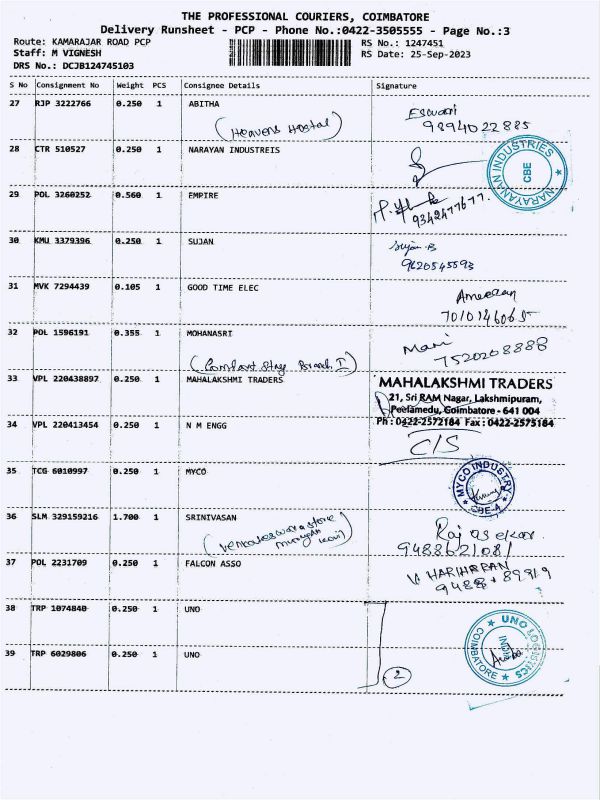 THE PROFESSIONAL COURIERS, COIMBATORE
Delivery Runsheet - PCP - Phone No.:0422-3505555 - Page No.:3
Route: KAMARAJAR ROAD PCP RS No.: 1247451
Staff: M VIGNESH RS Date: 25-Sep-2023
DRS No.: DCJB124745103
S No Consignment No Weight PCS Consignee Details Signature
27 RJP 3222766 0.250 1 ABITHA Eswari
(Heavens Hostal) 9894022885
28 CTR 510527 0.250 1 NARAYAN INDUSTREIS
NARAYANAN INDUSTRIES CBE
29 POL 3260252 0.560 1 EMPIRE
9342477677
30 KMU 3379396 0.250 1 SUJAN Sujan B
9620545593
31 MVK 7294439 0.105 1 GOOD TIME ELEC Ameeran
7010146065
32 POL 1596191 0.355 1 MOHANASRI Mari
(Comfort Stay Branch I) 7520208888
33 VPL 220438897 0.250 1 MAHALAKSHMI TRADERS MAHALAKSHMI TRADERS
21, Sri RAM Nagar, Lakshmipuram,
Peelamedu, Coimbatore - 641 004
Ph : 0422-2572184 Fax : 0422-2575184
34 VPL 220413454 0.250 1 N M ENGG C/S
35 TCG 6010997 0.250 1 MYCO MYCO INDUSTRY CBE-4
36 SLM 329159216 1.700 1 SRINIVASAN Rajasekar
(Venkateswara store 9488621081
37 POL 2231709 0.250 1 FALCON ASSO V. HARIHARAN
38 TRP 1074840 0.250 1 UNO
UNO LOGISTICS INDIA COIMBATORE
39 TRP 6029806 0.250 1 UNO
2